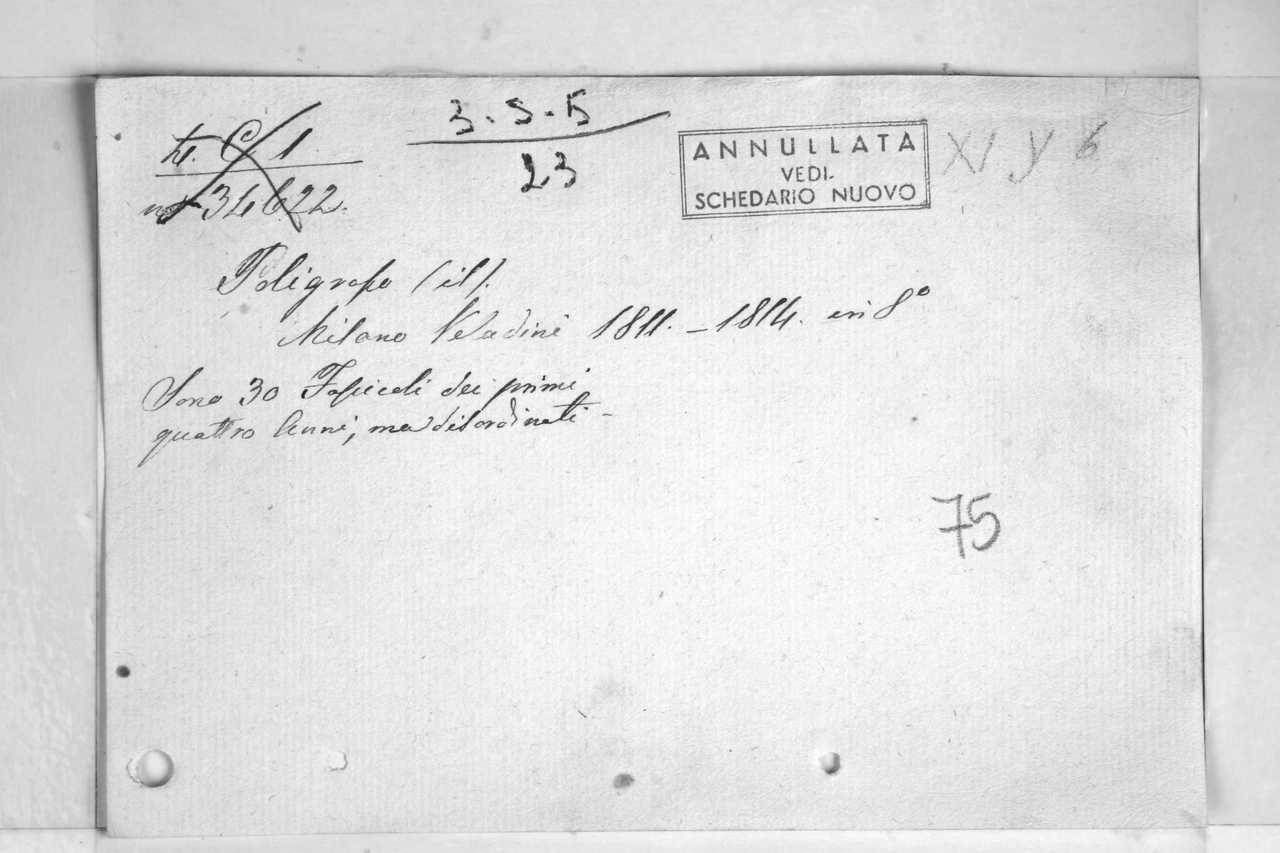 3-S-5
23
n° 34622.
ANNULLATA
VEDI.
SCHEDARIO NUOVO
XI y 6
Poligrafo (il).
Milano Veladini 1811. - 1814. in 8°
Sono 30 Fascicoli dei primi
quattro Anni, ma disordinati -
75